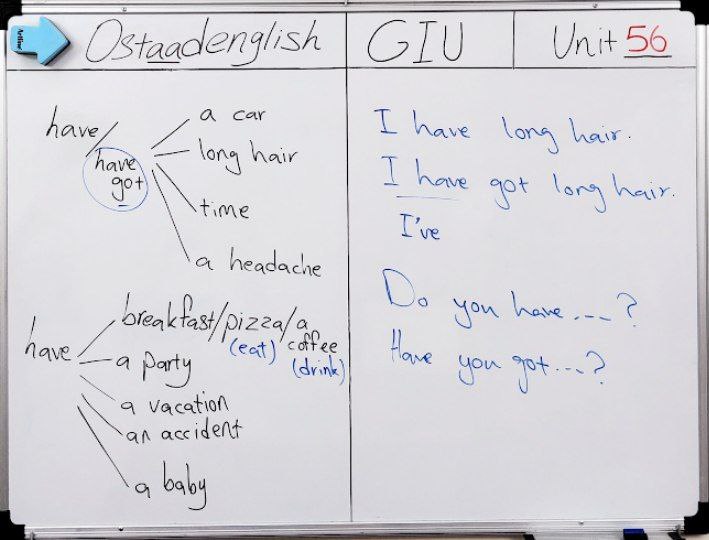 Artline
Ostaadenglish
GIU
Unit 56
have/
have got
a car
long hair
time
a headache
have
breakfast/pizza/a coffee
(eat)
(drink)
a party
a vacation
an accident
a baby
I have long hair.
I have got long hair.
I've
Do you have...?
Have you got...?